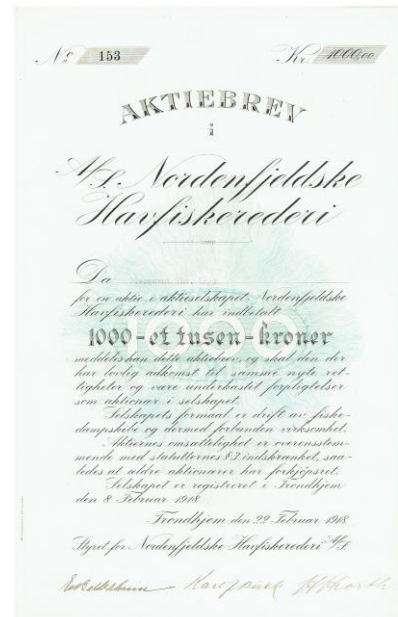 No 153 Kr. 1000,00
AKTIEBREV
i
A/S. Nordenfjeldske
Havfiskerederi
Da
for en aktie i aktieselskapet Nordenfjeldske
Havfiskerederi har indbetalt
1000-et tusen-kroner
meddeles han dette aktiebrev, og skal den der
har lovlig adkomst til samme nyte ret-
tigheter og være underkastet forpligtelser
som aktionær i selskapet.
Selskapets formaal er drift av fiske-
dampskibe og dermed forbunden virksomhet.
Aktiernes omsættelighet er overensstem-
mende med statutternes §3 indskrænket, saa-
ledes at ældre aktionærer har forkjøpsret.
Selskapet er registreret i Trondhjem
den 8 Februar 1918
Trondhjem den 22 Februar 1918.
Styret for Nordenfjeldske Havfiskerederi A/S